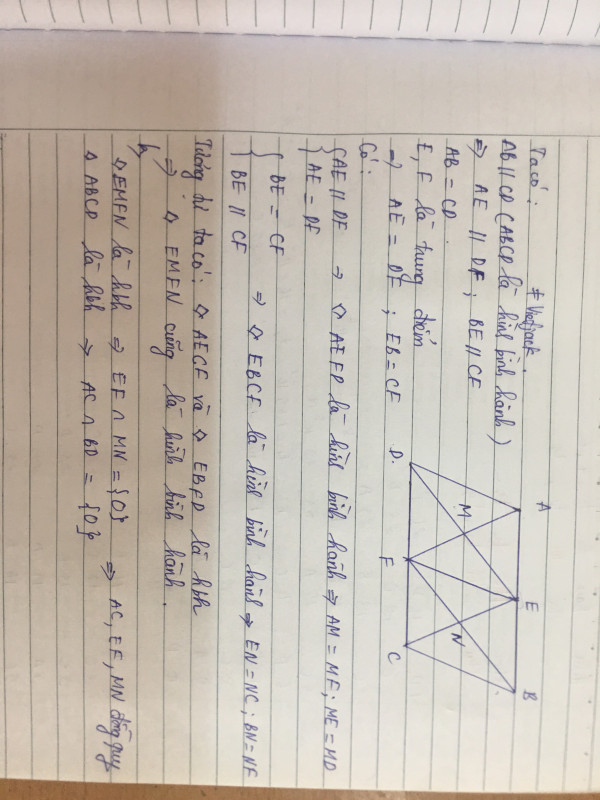 * Vietjack.
Ta có:
AB // CD (ABCD là hình bình hành)
⇒ AE // DF ; BE // CF
AB = CD.
E, F là trung điểm
⇒ AE = DF ; EB = CF
Có:
{ AE // DF
AE = DF ⇒ ◇ AEFD là hình bình hành ⇒ AM = MF ; ME = MD
{ BE = CF
BE // CF ⇒ ◇ EBCF là hình bình hành ⇒ EN = NC ; BN = NF
Tương tự ta có: ◇ AECF và ◇ EBFD là hbh
⇒ ◇ EMFN cũng là hình bình hành.
b,
◇ EMFN là hbh ⇒ EF ∩ MN = {O}
◇ ABCD là hbh ⇒ AC ∩ BD = {O}
⇒ AC, EF, MN đồng quy
A E B
M N
D. F C